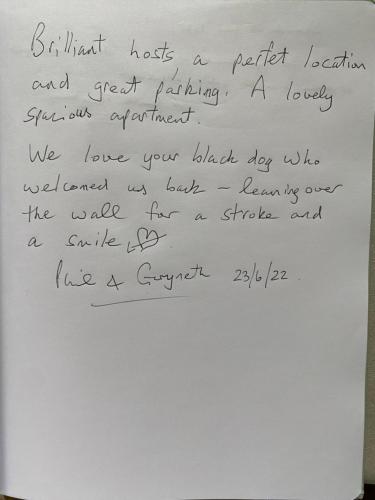 Brilliant hosts, a perfet location
and great parking. A lovely
spacious apartment.
We love your black dog who
welcomed us back – leaning over
the wall for a stroke and
a smile ♡.
Phil & Gwyneth 23/6/22.